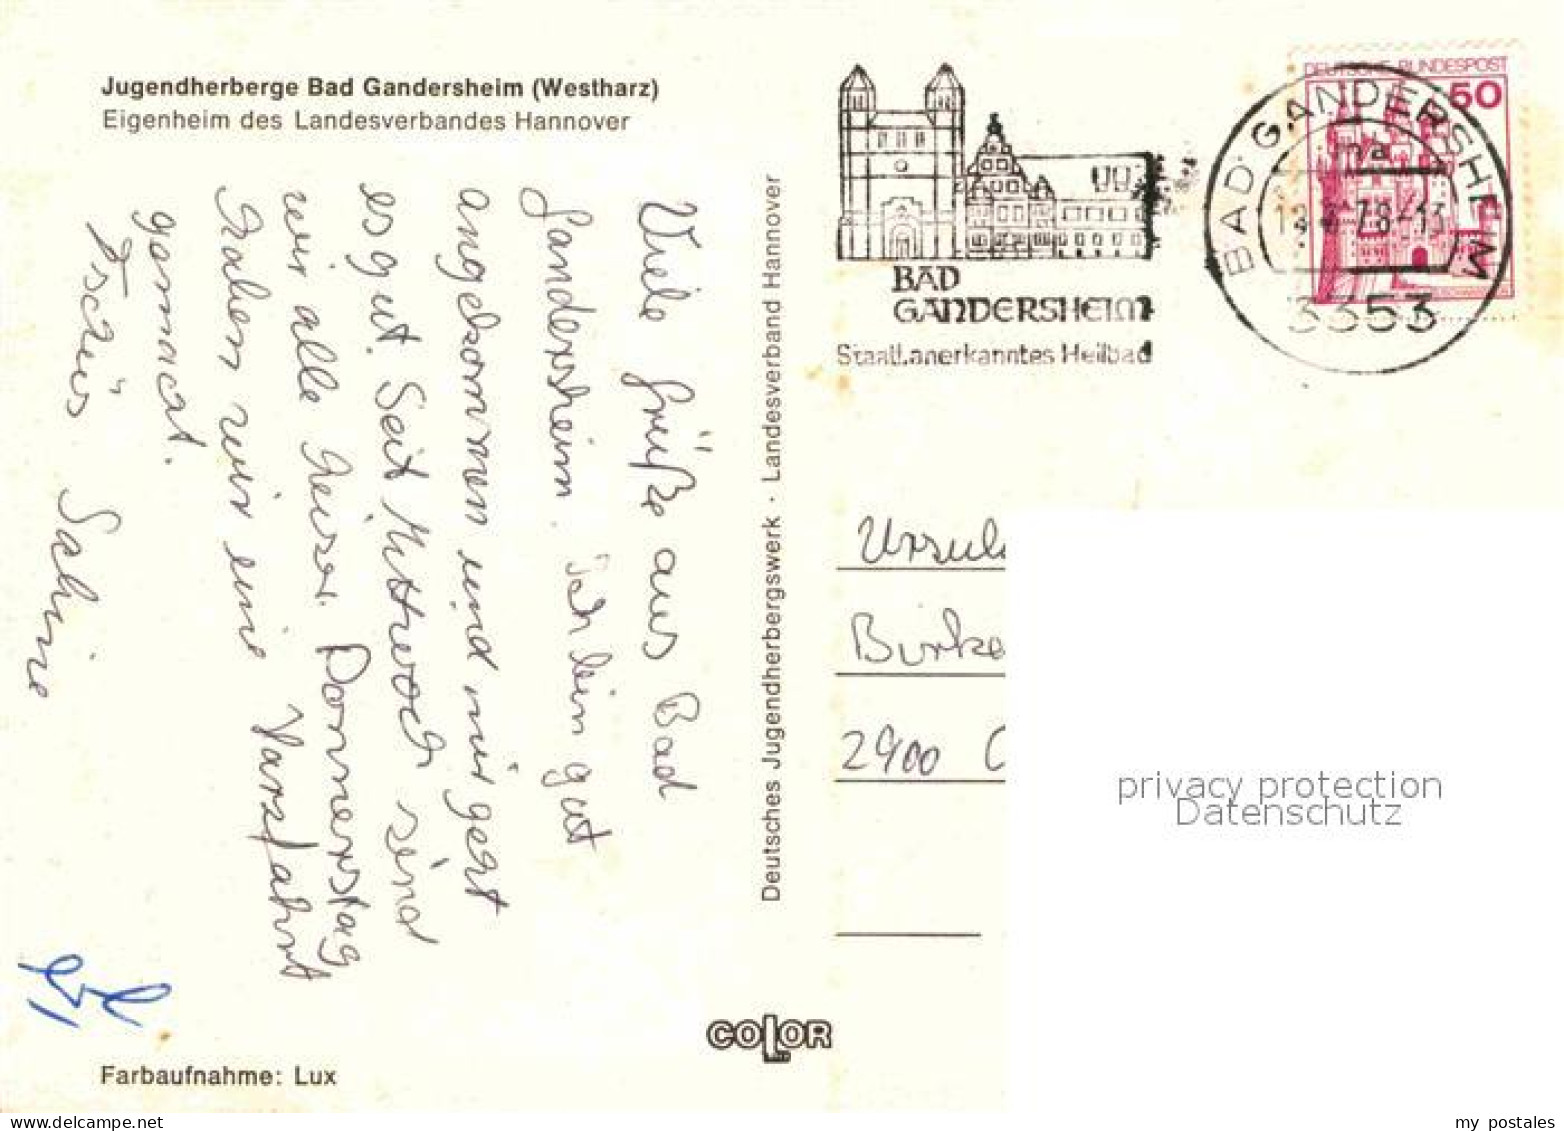 Jugendherberge Bad Gandersheim (Westharz)
Eigenheim des Landesverbandes Hannover
Viele Grüße aus Bad
Gandersheim. Ich bin gut
angekommen und mir geht
es gut. Seit Mittwoch sind
wir alle heiser. Donnerstag
haben wir eine Harzfahrt
gemacht.
Tschüs Sabine
Deutsches Jugendherbergswerk · Landesverband Hannover
COLOR
Farbaufnahme: Lux
BAD
GANDERSHEIM
Staatl.anerkanntes Heilbad
DEUTSCHE BUNDESPOST
50
BAD GANDERSHEIM
78-13
3353
Ursul
Burke
2900
privacy protection
Datenschutz
my postales